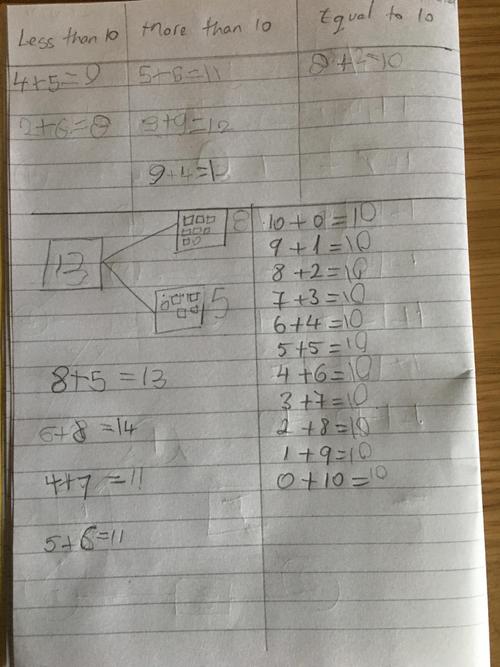 Less than 10 More than 10 Equal to 10
4+5=9 5+6=11 8+2=10
2+6=8 3+9=12
9+4=1
8
13
5
10+0=10
9+1=10
8+2=10
7+3=10
6+4=10
5+5=10
4+6=10
3+7=10
2+8=10
1+9=10
0+10=10
8+5=13
6+8=14
4+7=11
5+6=11